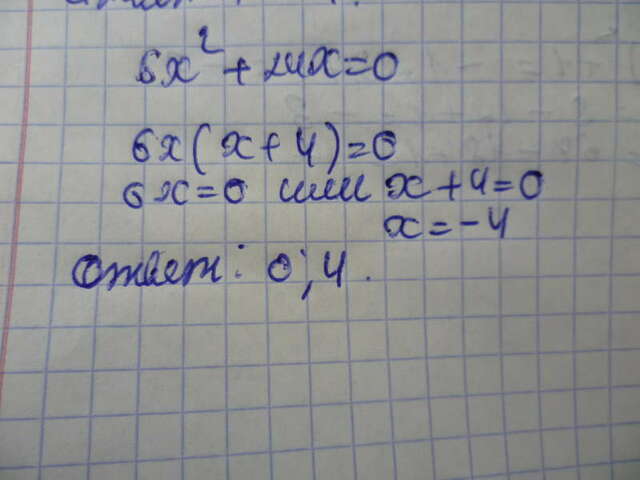 6x² + 24x = 0
6x(x+4)=0
6x=0 или x+4=0
x=-4
Ответ: 0; 4.